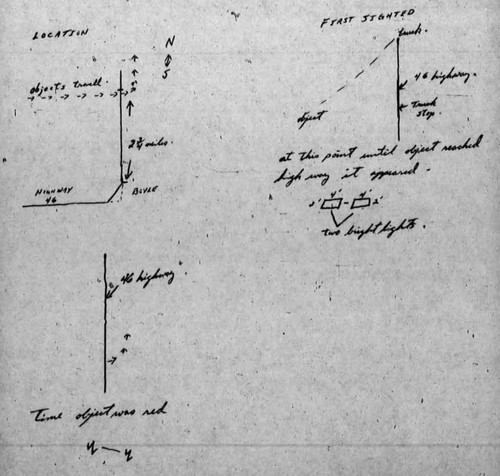 LOCATION
N
S
objects travel.
2 3/4 miles.
HIGHWAY
46
BLYLE
FIRST SIGHTED
truck.
46 highway.
object
Truck
stop.
at this point until object reached
high way it appeared.
2' 4' - 4' 2'
two bright lights.
46 highway.
Time object was red